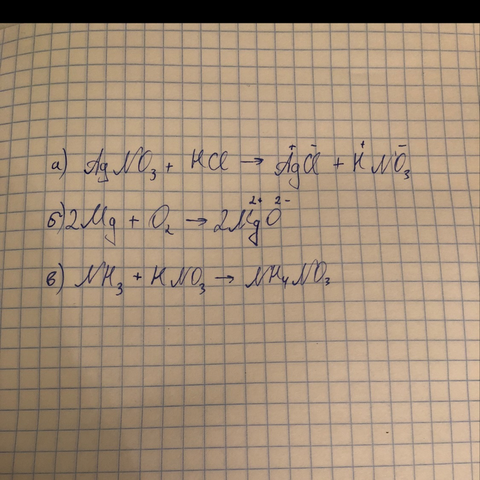 а) AgNO₃ + HCl → Ag⁺Cl⁻ + H⁺NO₃⁻
б) 2Mg + O₂ → 2Mg²⁺O²⁻
в) NH₃ + HNO₃ → NH₄NO₃